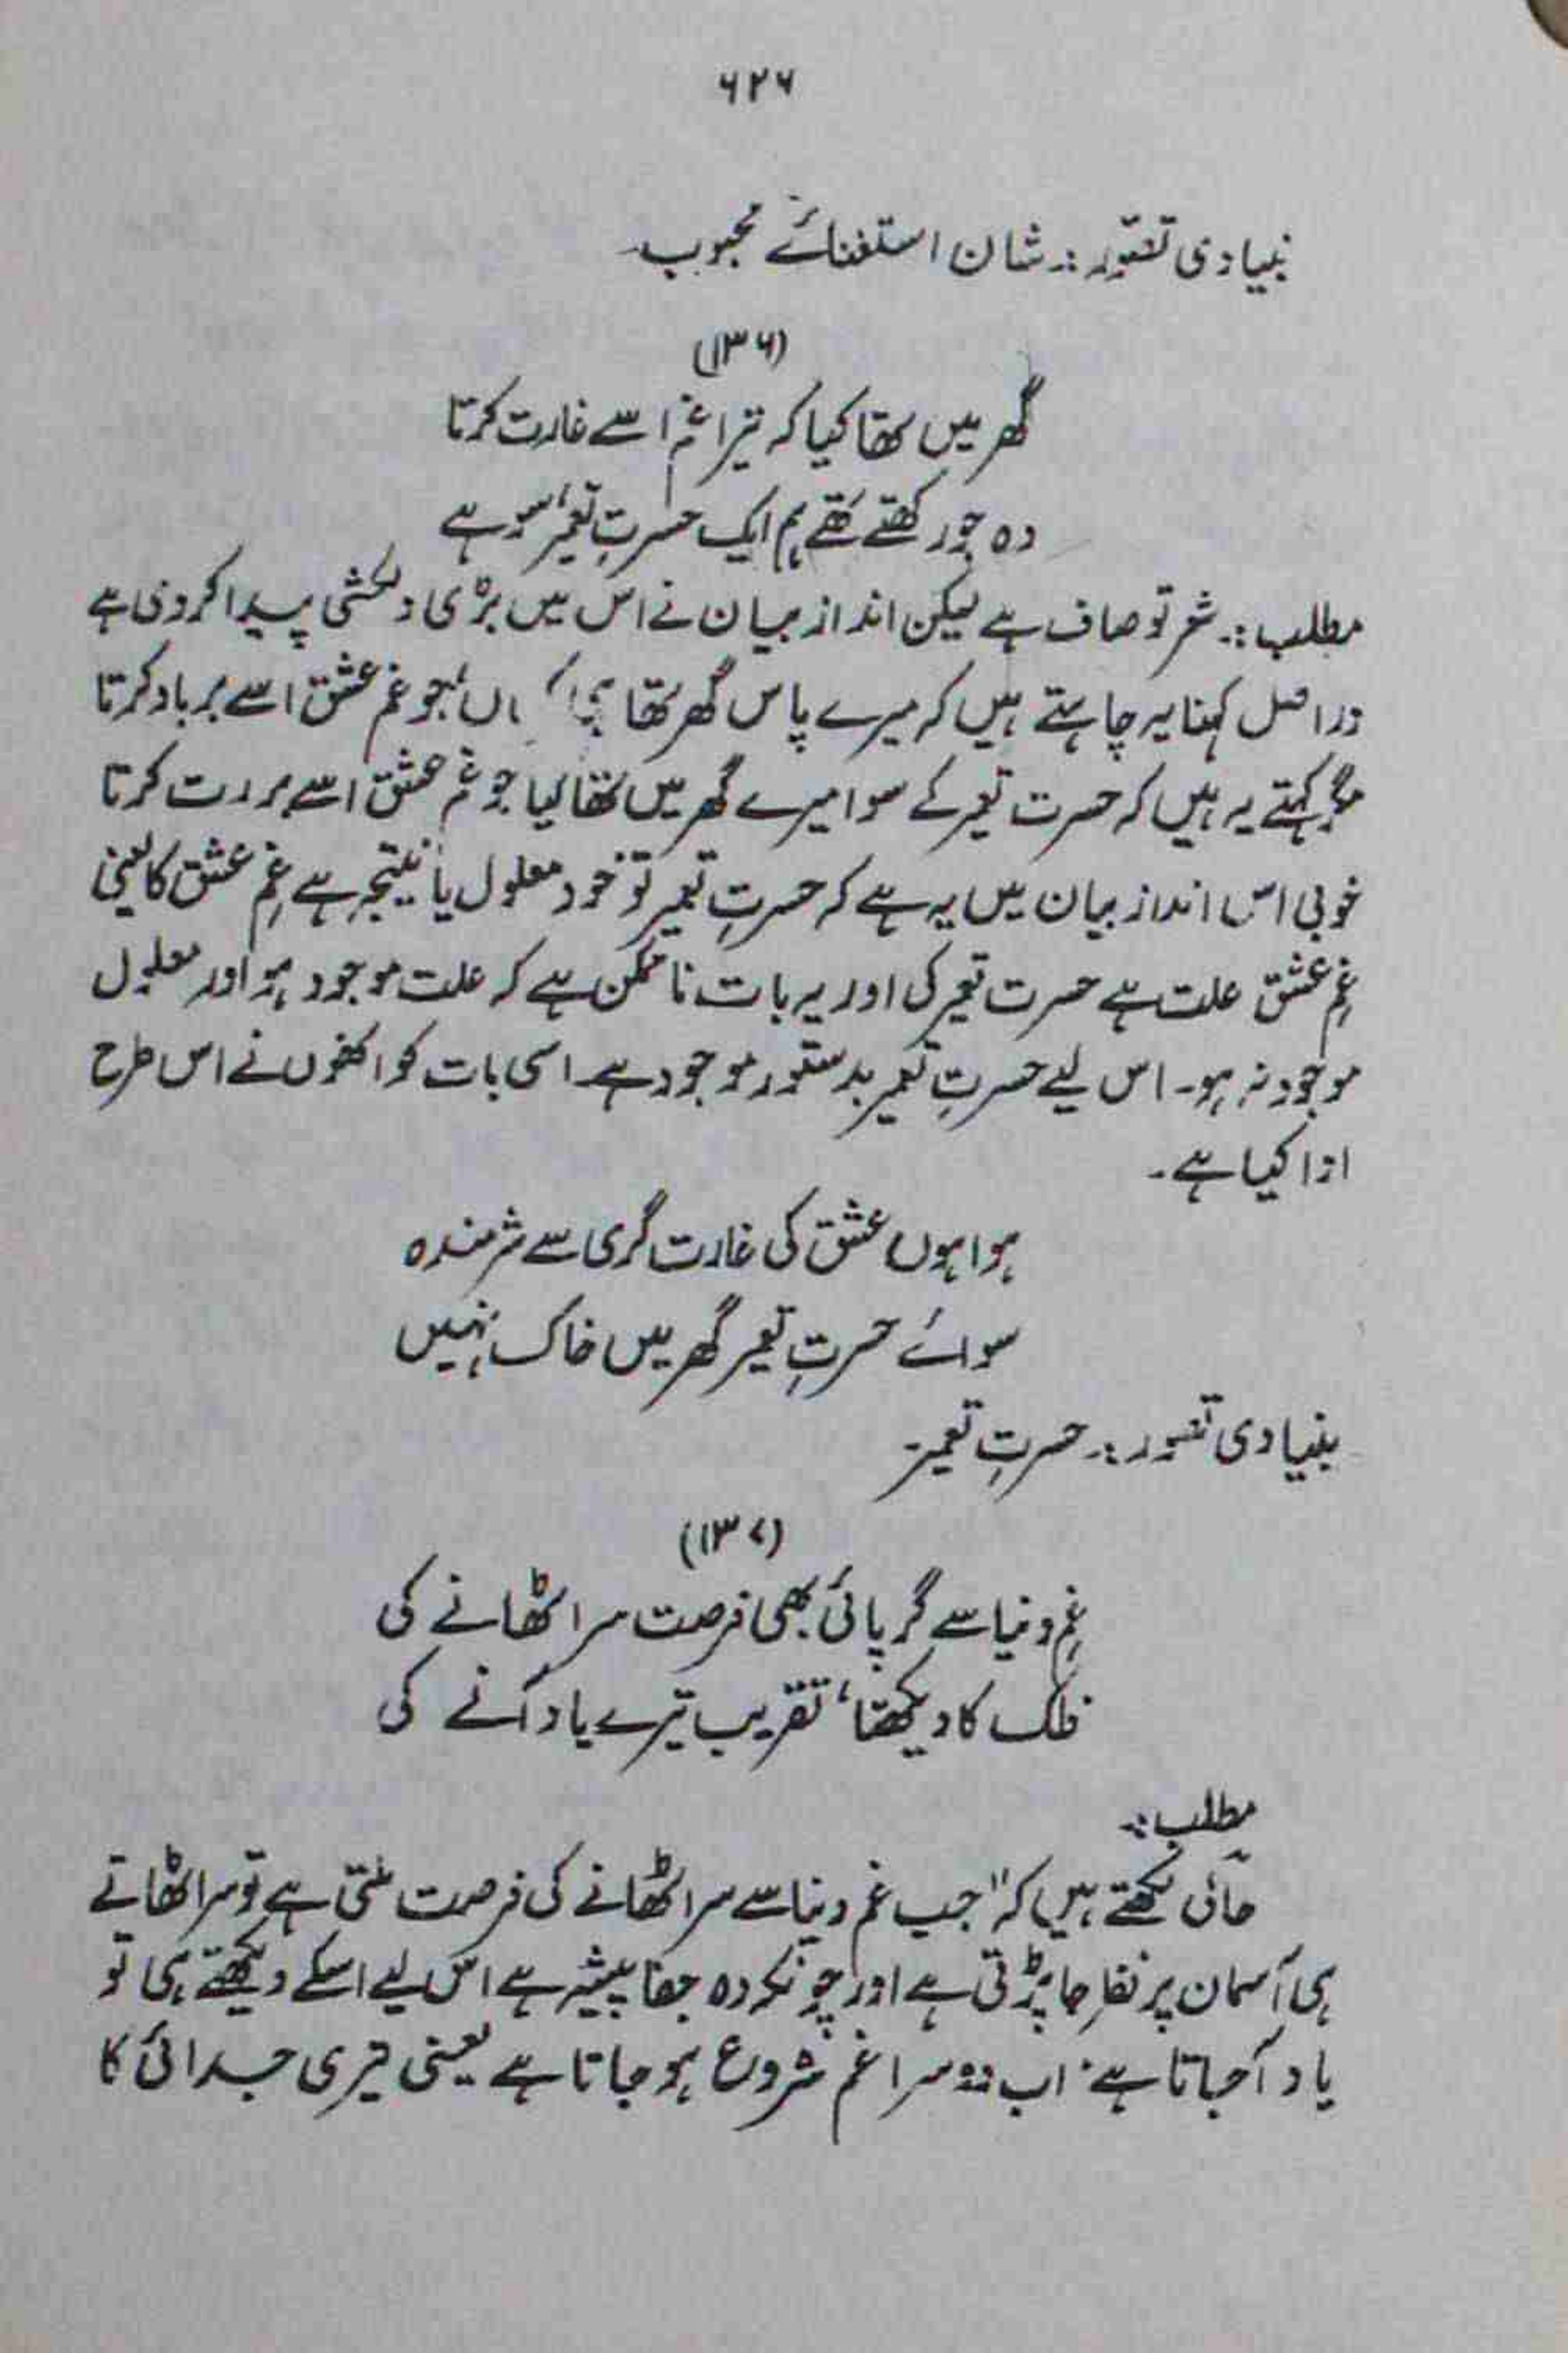 ۶۲۶
بنیادی تصوّر:۔ شان استغنائے محبوب۔
(۱۳۶)
گھر میں تھا کیا کہ ترا غم اسے غارت کرتا
وہ جو رکھتے تھے ہم ایک حسرتِ تعمیر، سو ہے
مطلب:۔ شعر تو صاف ہے لیکن انداز بیان نے اس میں بڑی دلکشی پیدا کر دی ہے
دراصل کہنا یہ چاہتے ہیں کہ میرے پاس گھر تھا ہی ہاں، جو غم عشق اسے برباد کرتا
مگر کہتے یہ ہیں کہ حسرت تعمیر کے سوا میرے گھر میں تھا کیا جو غم عشق اسے کرتا
خوبی اس انداز بیان میں یہ ہے کہ حسرتِ تعمیر تو خود معلول یا نتیجہ ہے غمِ عشق کا یعنی
غمِ عشق علت ہے حسرت تعمیر کی اور یہ بات ناممکن ہے کہ علت موجود ہو اور معلول
موجود نہ ہو۔ اس لیے حسرتِ تعمیر بدستور موجود ہے۔ اسی بات کو انھوں نے اس طرح
ادا کیا ہے۔
ہوا ہوں عشق کی غارت گری سے شرمندہ
سوائے حسرتِ تعمیر گھر میں خاک نہیں
بنیادی تصور:۔ حسرتِ تعمیر۔
(۱۳۷)
غمِ دنیا سے گر پائی بھی فرصت سر اٹھانے کی
فلک کا دیکھنا، تقریب تیرے یاد آنے کی
مطلب:۔
حالی لکھتے ہیں کہ "جب غم دنیا سے سر اٹھانے کی فرصت ملتی ہے تو سر اٹھاتے
ہی آسمان پر نظر جا پڑتی ہے اور چونکہ وہ جفا پیشہ ہے اس لیے اسکے دیکھتے ہی تو
یاد آجاتا ہے۔ اب دوسرا غم شروع ہو جاتا ہے یعنی تیری جدائی کا